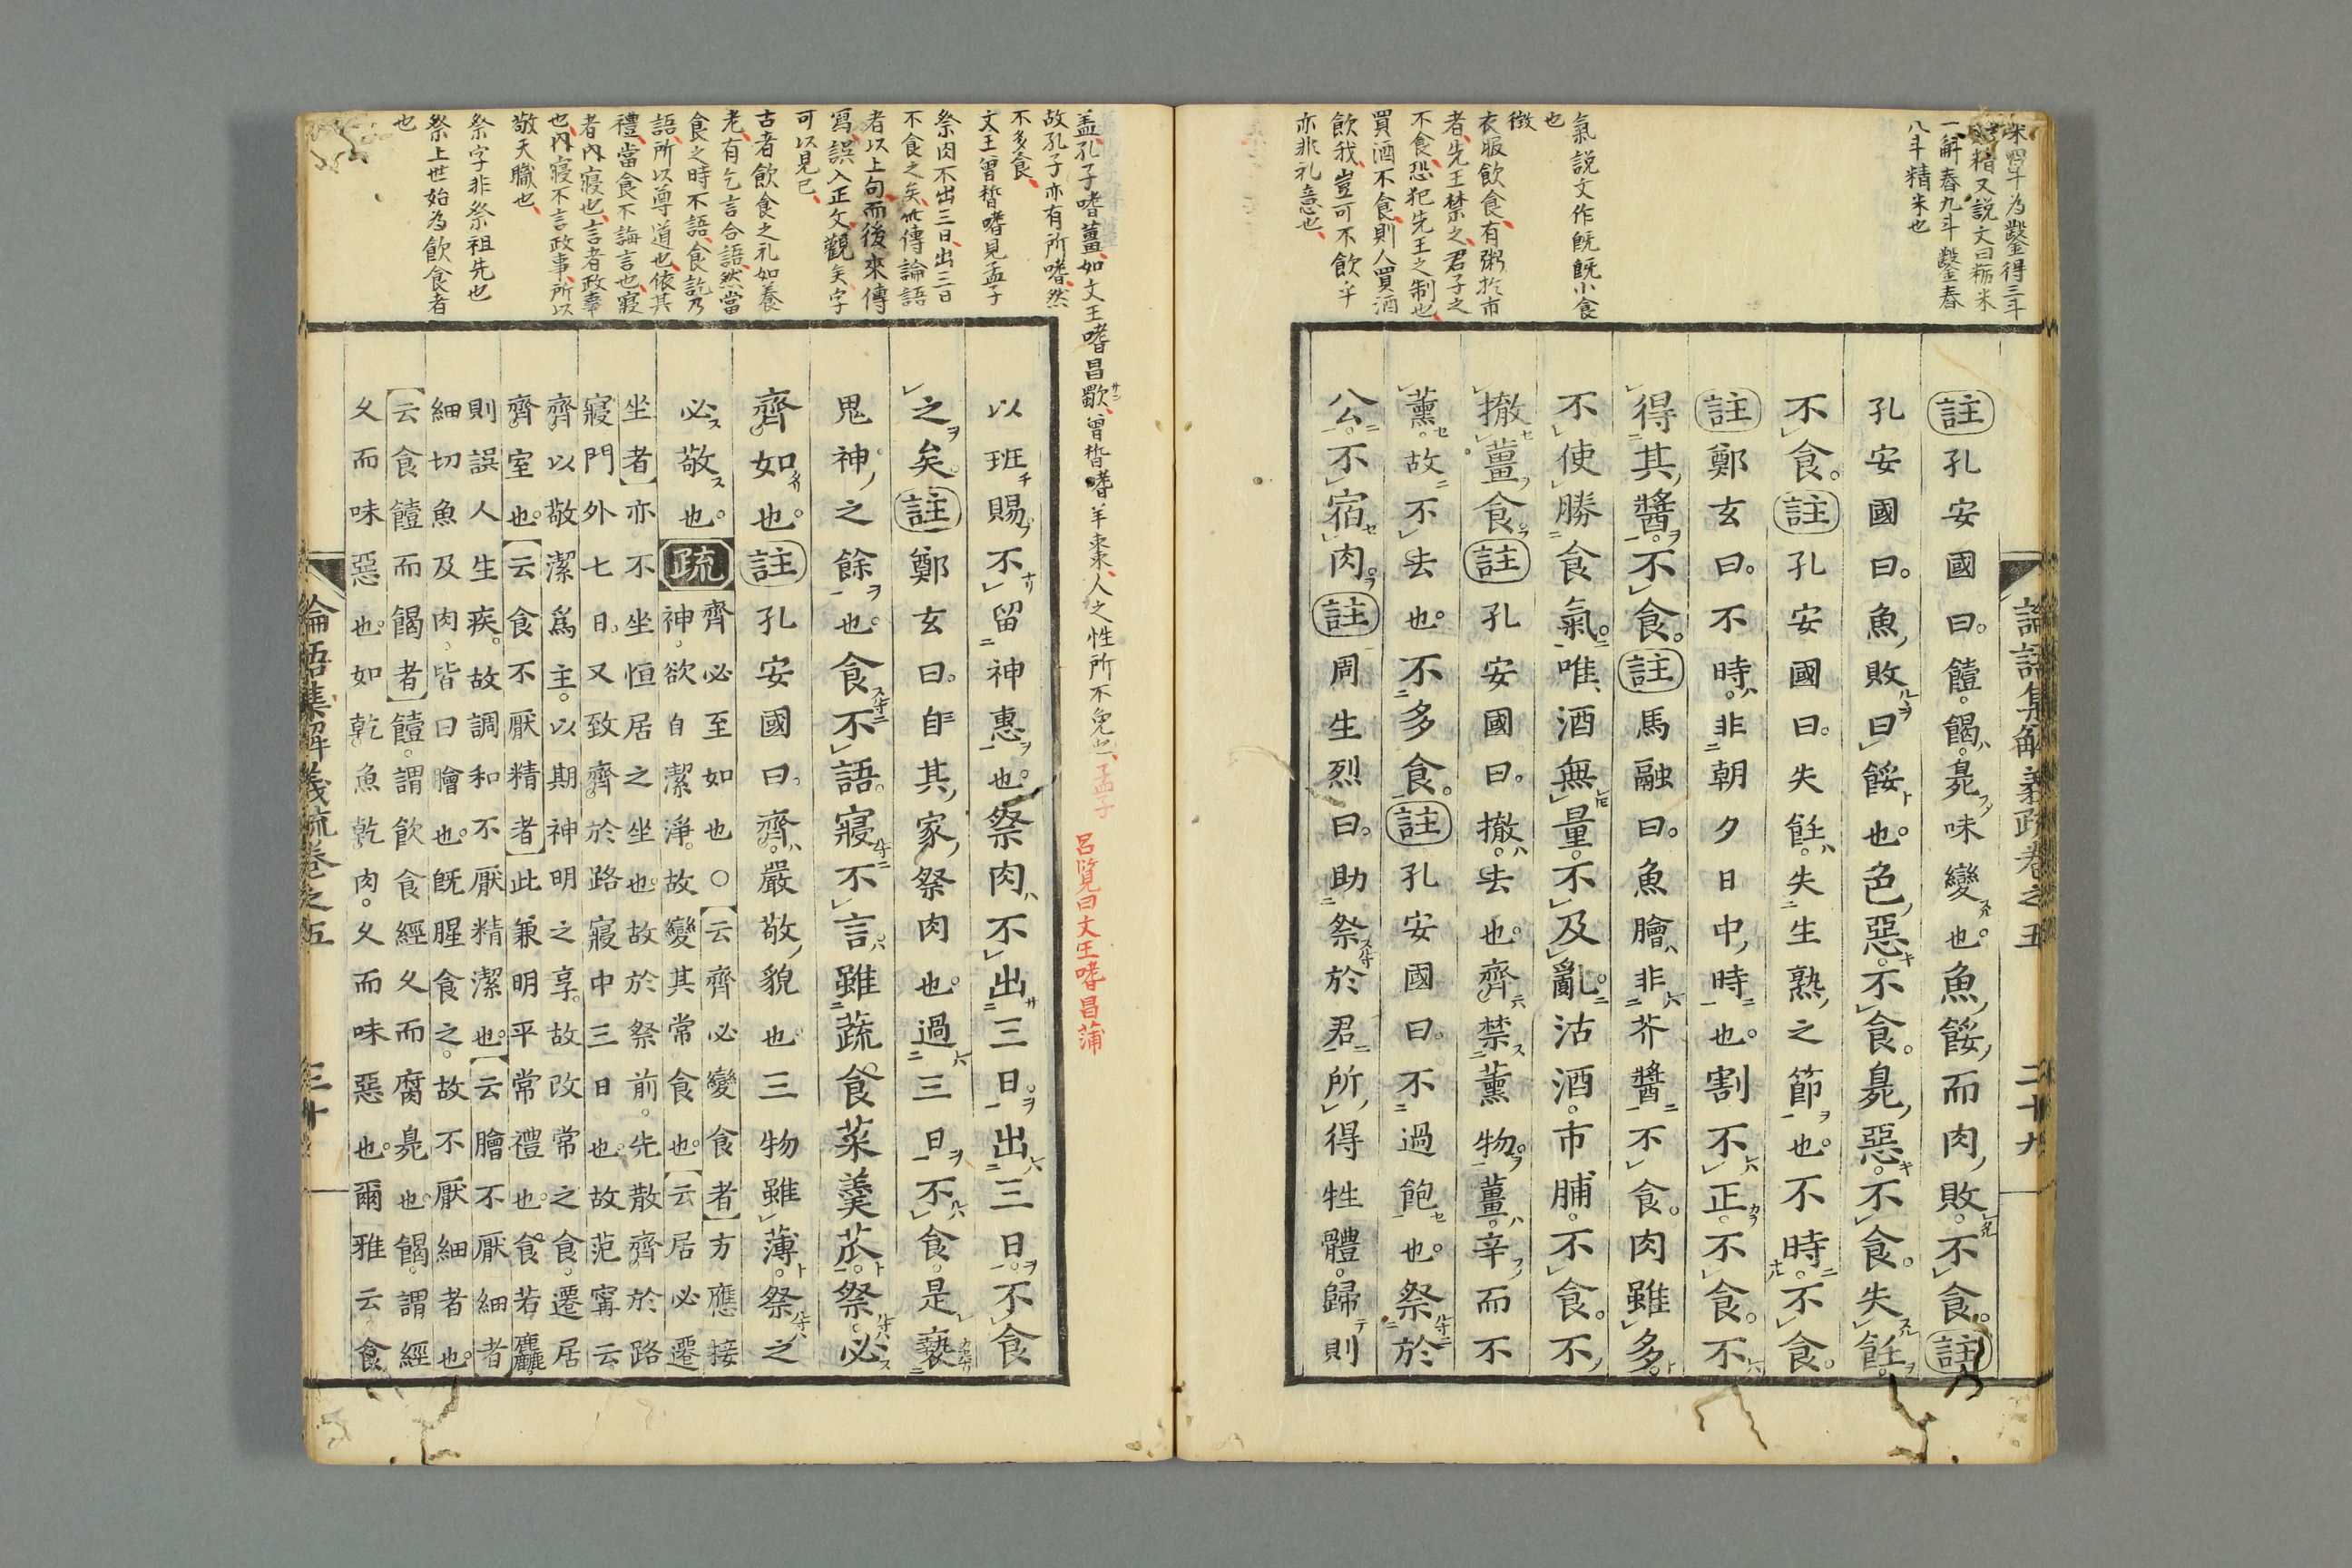 米四斗為鑿得三斗
精又説文曰粝米
一斛舂九斗鑿舂
八斗精米也
氣説文作既既小食
也
徴
衣服飲食有粥於市
者先王禁之君子之
不食恐犯先王之制也
買酒不食則人買酒
飲我豈可不飲乎
亦非礼意也
論語集解義疏卷之五 二十九
註孔安國曰饐餲臭味變也魚餒而肉敗不食註
孔安國曰魚敗曰餒也色惡不食臭惡不食失飪
不食註孔安國曰失飪失生熟之節也不時不食
註鄭玄曰不時非朝夕日中時也割不正不食不
得其醬不食註馬融曰魚膾非芥醬不食肉雖多
不使勝食氣唯酒無量不及亂沽酒市脯不食不
撤薑食註孔安國曰撤去也齊禁薫物薑辛而不
薫故不去也不多食註孔安國曰不過飽也祭於
公不宿肉註周生烈曰助祭於君所得牲體歸則
呂覧曰文王嗜昌蒲
盖孔子嗜薑如文王嗜昌歜曾晳嗜羊棗人之性所不免也孟子
故孔子亦有所嗜然
不多食
文王曾晳嗜見孟子
祭肉不出三日出三日
不食之矣此傳論語
者以上句而後來傳
寫誤入正文觀矣字
可以見已
古者飲食之礼如養
老有乞言合語然當
食之時不語食訖乃
語所以尊道也依其
禮當食不誨言也寢
者内寢也言者政事
也内寢不言政事所以
敬天職也
祭字非祭祖先也
祭上世始為飲食者
也
以班賜不留神惠也祭肉不出三日出三日不食
之矣註鄭玄曰自其家祭肉也過三日不食是褻
鬼神之餘也食不語寢不言雖蔬食菜羹苽祭必
齊如也註孔安國曰齊嚴敬貌也三物雖薄祭之
必敬也疏齊必至如也○云齊必變食者方應接
神欲自潔淨故變其常食也云居必遷
坐者亦不坐恒居之坐也故於祭前先散齊於路
寢門外七日又致齊於路寢中三日也故范甯云
齊以敬潔爲主以期神明之享故改常之食遷居
齊室也云食不厭精者此兼明平常禮也食若麤
則誤人生疾故調和不厭精潔也云膾不厭細者
細切魚及肉皆曰膾也既腥食之故不厭細者也
云食饐而餲者饐謂飲食經久而腐臭也餲謂經
久而味惡也如乾魚乾肉久而味惡也爾雅云食
論語集解義疏卷之五 三十